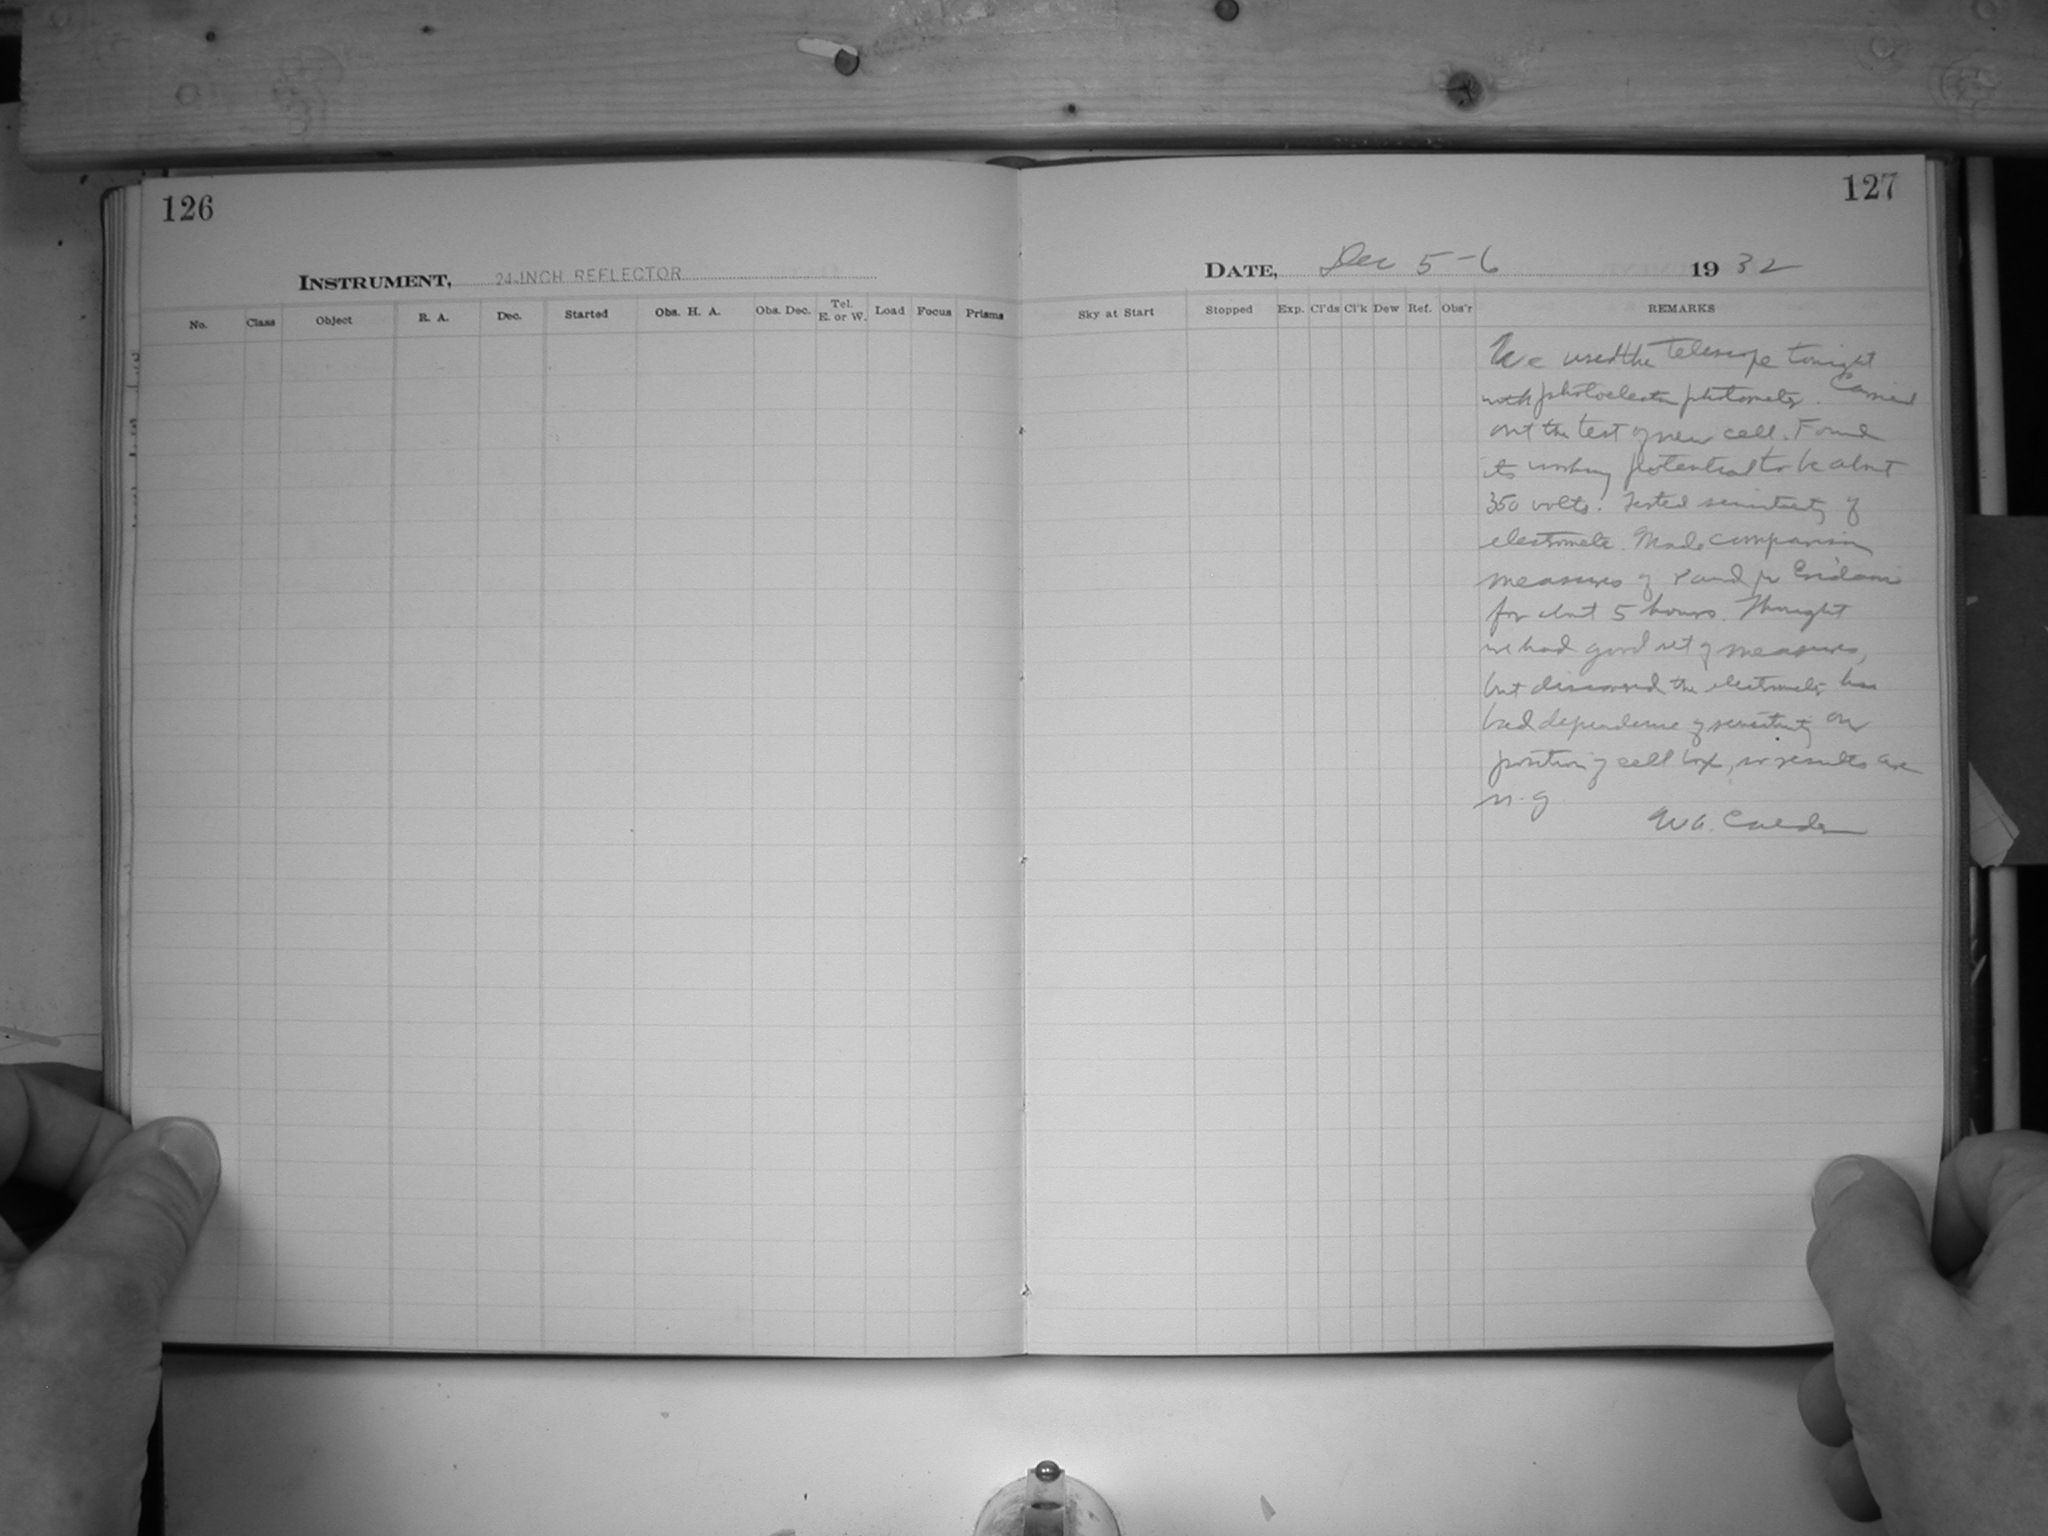 126
INSTRUMENT, 24-INCH REFLECTOR
No. Class Object R. A. Dec. Started Obs. H. A. Obs. Dec. Tel. E. or W. Load Focus Prisms
127
DATE, Dec 5-6 1932
Sky at Start Stopped Exp. Cl'ds Cl'k Dew Ref. Obs'r REMARKS
We used the telescope tonight
with photoelectric photometer. Carried
out the test of new cell. Found
its working potential to be about
350 volts. Tested sensitivity of
electrometer. Made comparison
measures of ν and μ Eridani
for about 5 hours. Thought
we had good set of measures,
but discovered the electrometer has
bad dependence of sensitivity on
position of cell box, so results are
n.g.
W A. Calder